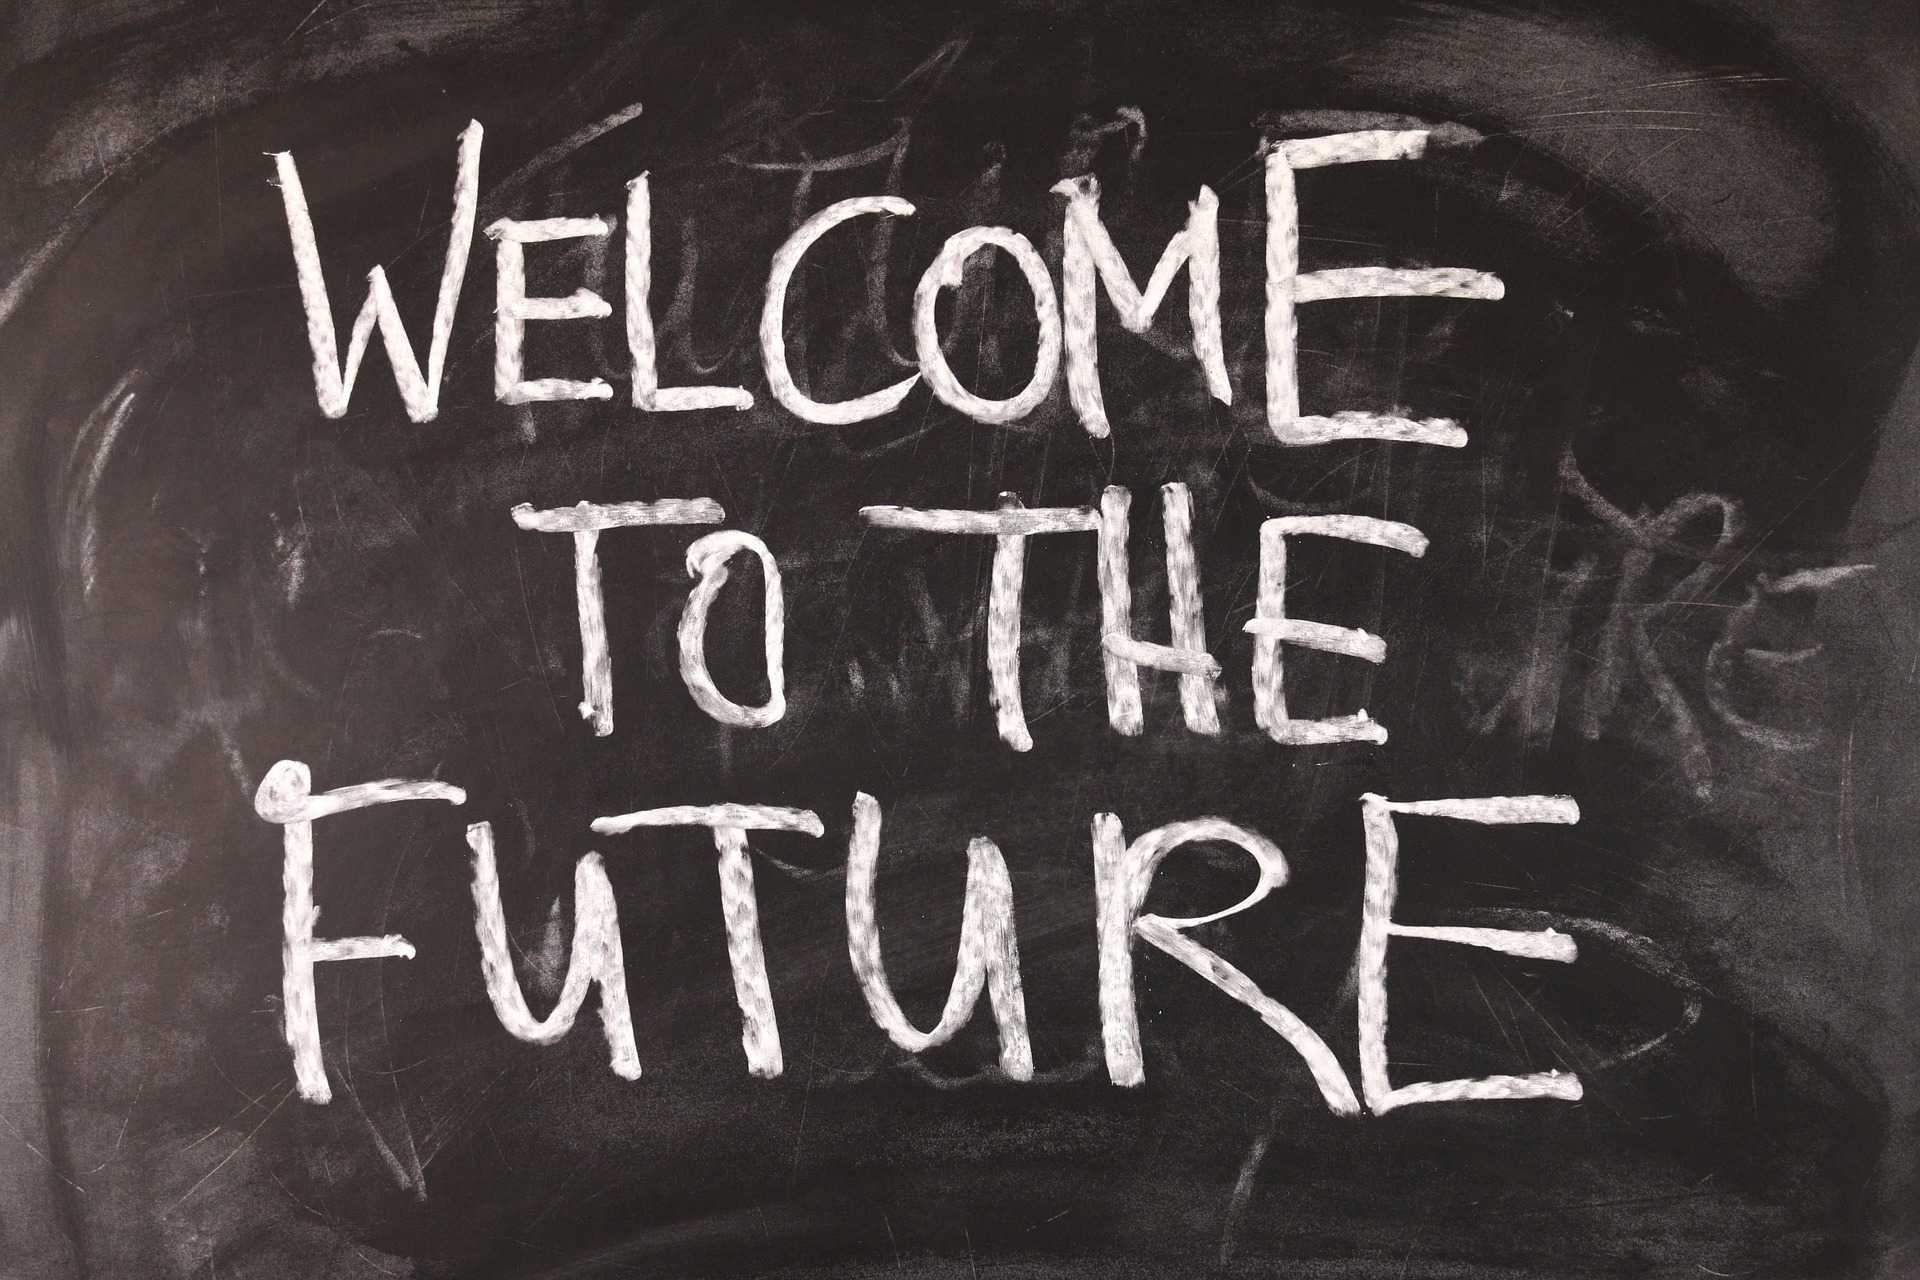 WELCOME
TO THE
FUTURE